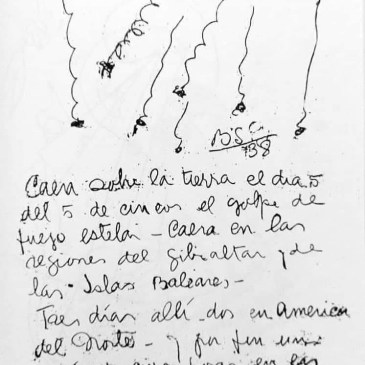 B.S.P.
738
Caera sobre la tierra el dia 5
del 5 de cincos el golpe de
fuego estelar - Caera en las
regiones del Gibraltar y de
las - Islas Baleares -
Tres días allí - dos en America
del Norte - y por fin un
en las